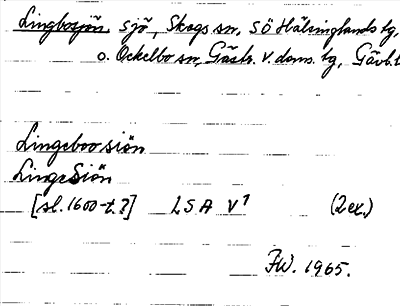 Lingbosjön, sjö, Skogs sn, SÖ Hälsinglands tg,
o. Ockelbo sn, Gästr. V. doms. tg, Gävl. l
Lingeboo siön
Linge Siön
[sl. 1600-t.?] LSA V1 (2 ex.)
FW. 1965.